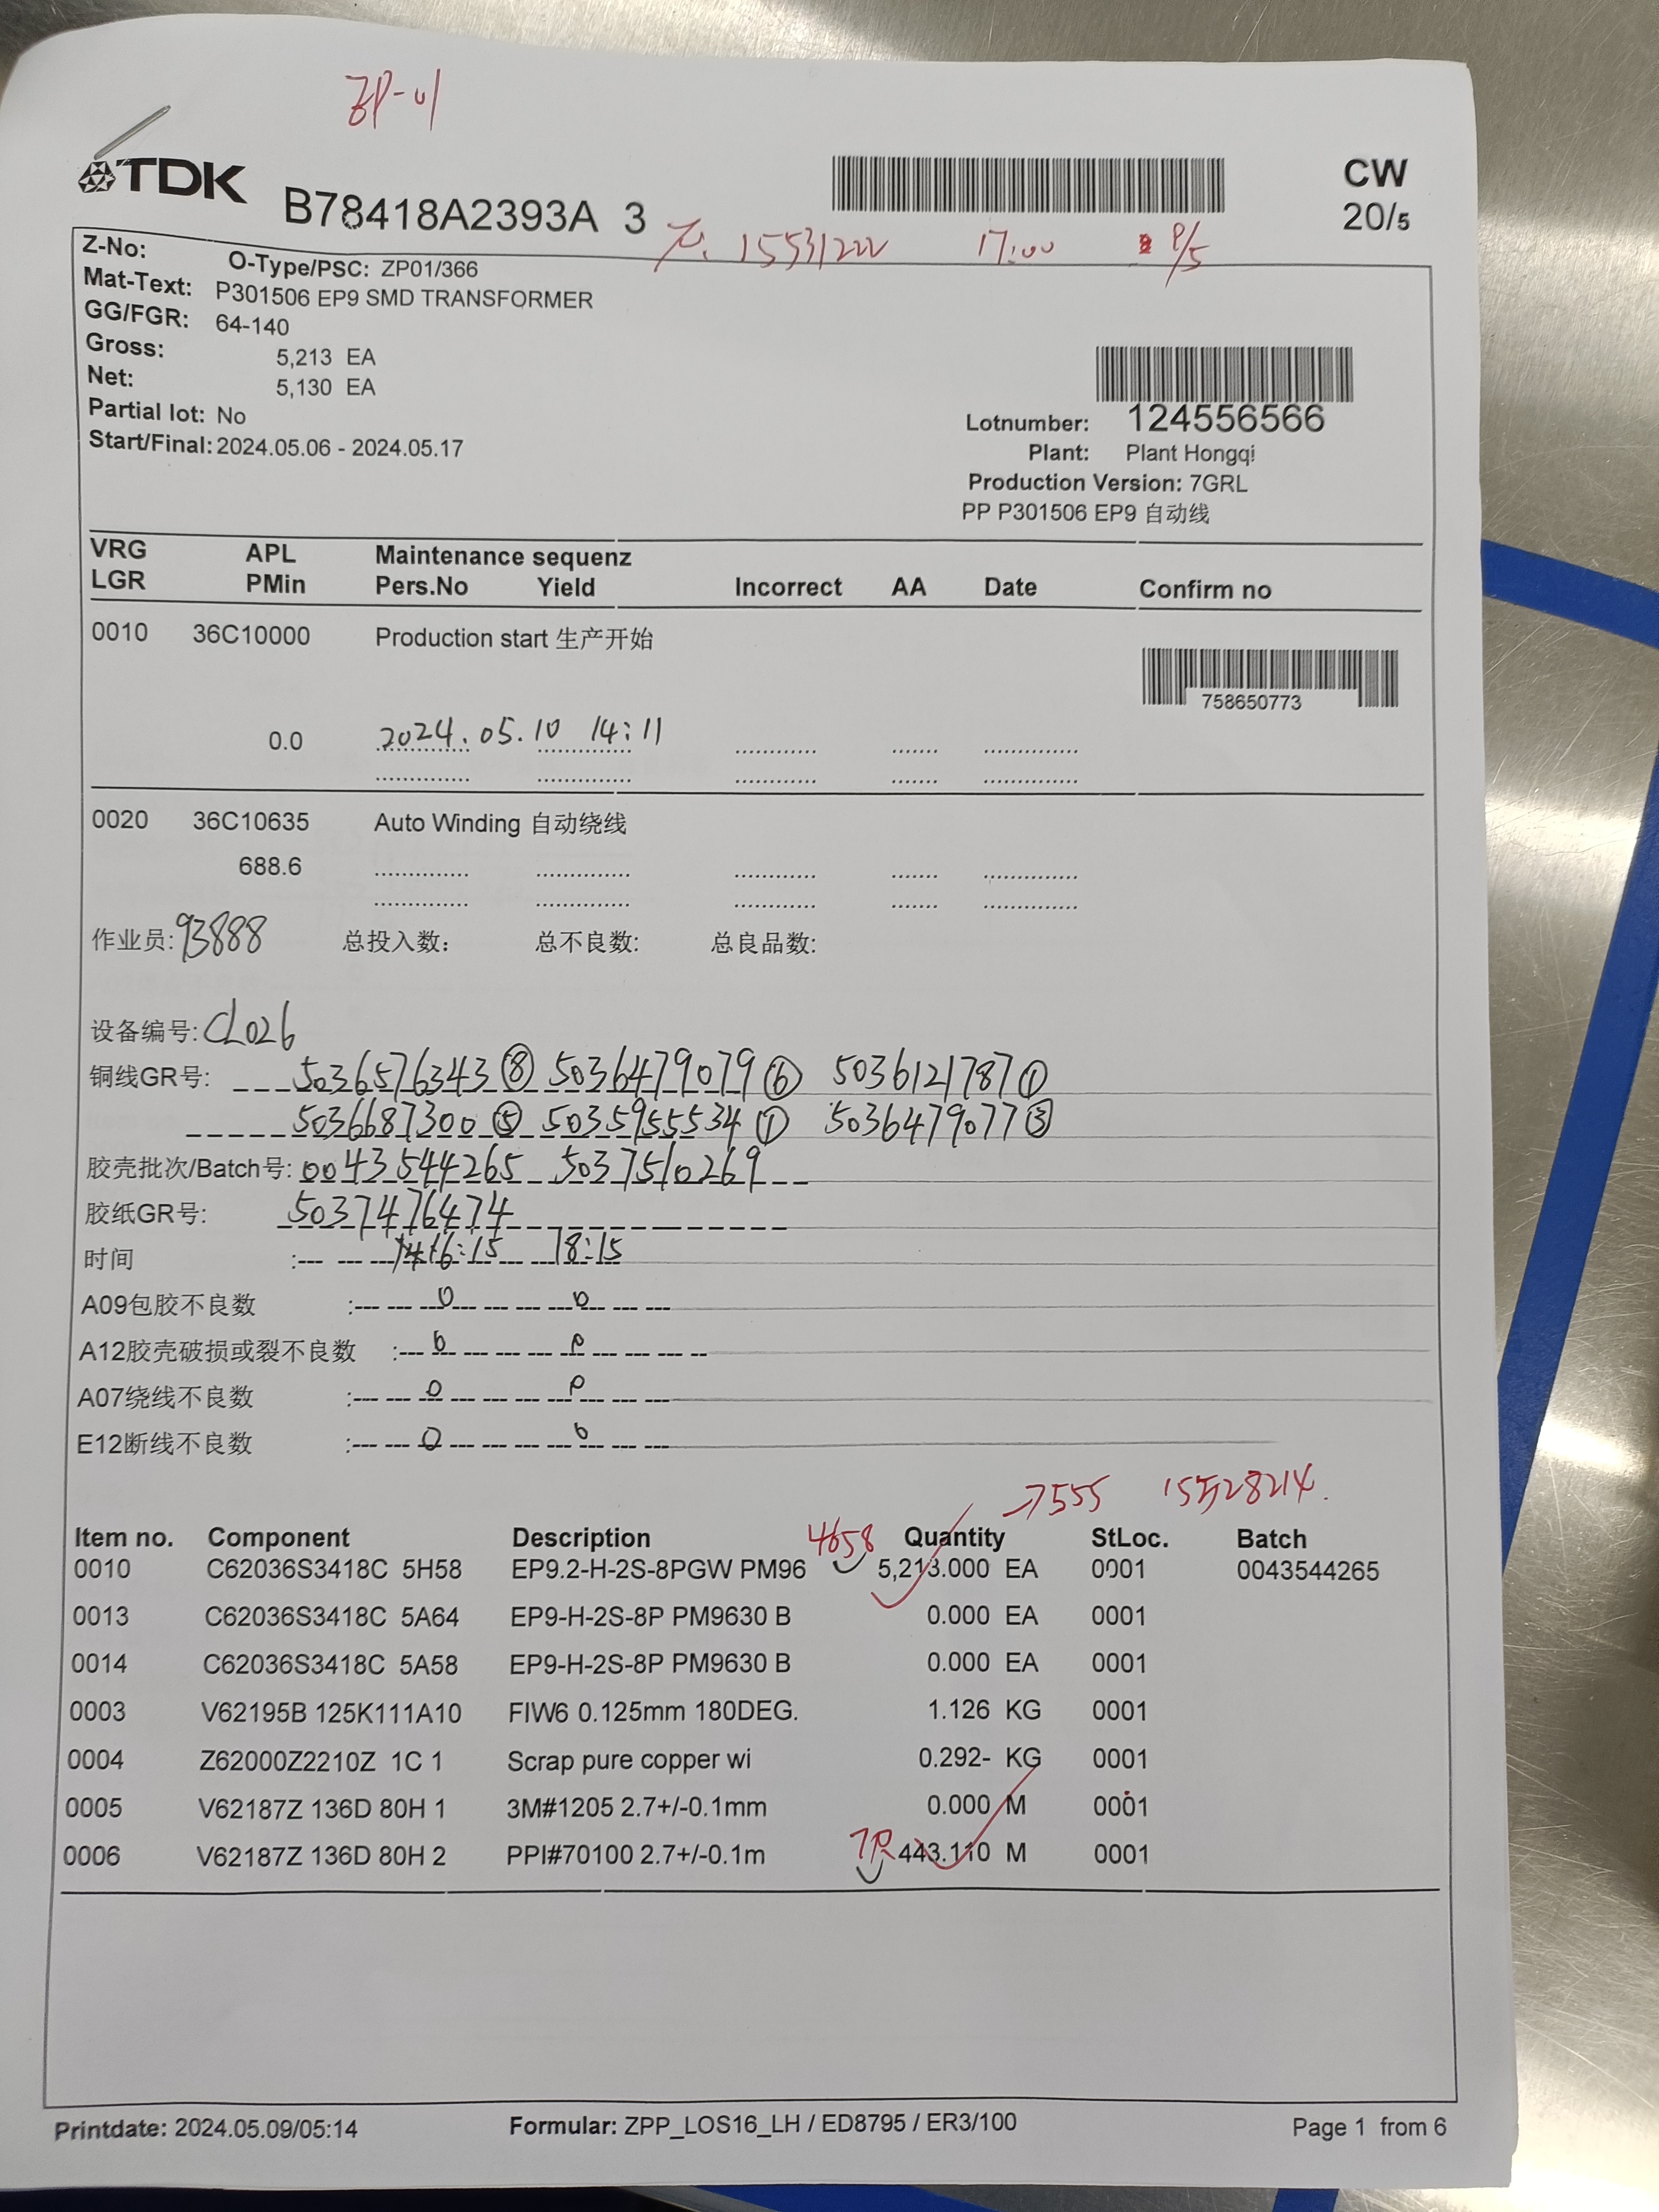 TDK
B78418A2393A 3
CW
20/5
15531222 17:00
Z-No:
O-Type/PSC: ZP01/366
Mat-Text: P301506 EP9 SMD TRANSFORMER
GG/FGR: 64-140
Gross: 5,213 EA
Net: 5,130 EA
Partial lot: No
Start/Final: 2024.05.06 - 2024.05.17
Lotnumber: 124556566
Plant: Plant Hongqi
Production Version: 7GRL
PP P301506 EP9 自动线
VRG APL Maintenance sequenz
LGR PMin Pers.No Yield Incorrect AA Date Confirm no
0010 36C10000 Production start 生产开始
758650773
0.0 2024.05.10 14:11
0020 36C10635 Auto Winding 自动绕线
688.6
作业员: 93888 总投入数: 总不良数: 总良品数:
设备编号: CL026
铜线GR号: 5036576343⑧ 5036479079⑥ 5036121787①
5036687300⑤ 5035955534① 5036479077③
胶壳批次/Batch号: 0043544265 5037510269
胶纸GR号: 5037476474
时间 : 16:15 18:15
A09包胶不良数 : 0 0
A12胶壳破损或裂不良数 : 0 0
A07绕线不良数 : 0 0
E12断线不良数 : 0 0
7555
Item no. Component Description 4658 Quantity StLoc. Batch
0010 C62036S3418C 5H58 EP9.2-H-2S-8PGW PM96 5,213.000 EA 0001 0043544265
0013 C62036S3418C 5A64 EP9-H-2S-8P PM9630 B 0.000 EA 0001
0014 C62036S3418C 5A58 EP9-H-2S-8P PM9630 B 0.000 EA 0001
0003 V62195B 125K111A10 FIW6 0.125mm 180DEG. 1.126 KG 0001
0004 Z62000Z2210Z 1C 1 Scrap pure copper wi 0.292- KG 0001
0005 V62187Z 136D 80H 1 3M#1205 2.7+/-0.1mm 0.000 M 0001
0006 V62187Z 136D 80H 2 PPI#70100 2.7+/-0.1m 443.110 M 0001
Printdate: 2024.05.09/05:14 Formular: ZPP_LOS16_LH / ED8795 / ER3/100 Page 1 from 6